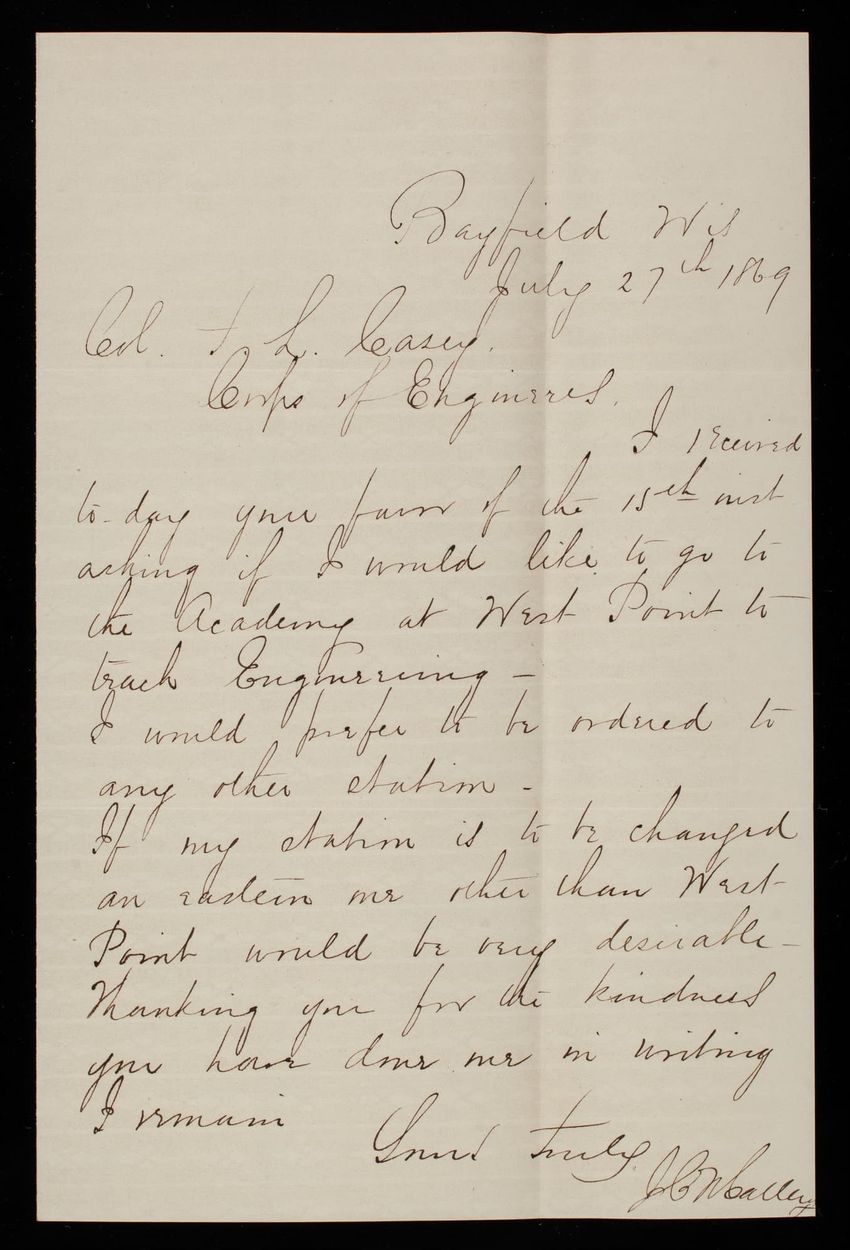 Bayfield Wis
July 27th 1869
Col. T L. Casey.
Corps of Engineers.
I received
to-day your favor of the 15th inst
asking if I would like to go to
the Academy at West Point to
teach Engineering -
I would prefer to be ordered to
any other station -
If my station is to be changed
an eastern one other than West
Point would be very desirable -
Thanking you for the kindness
you have done me in writing
I remain
Yours Truly